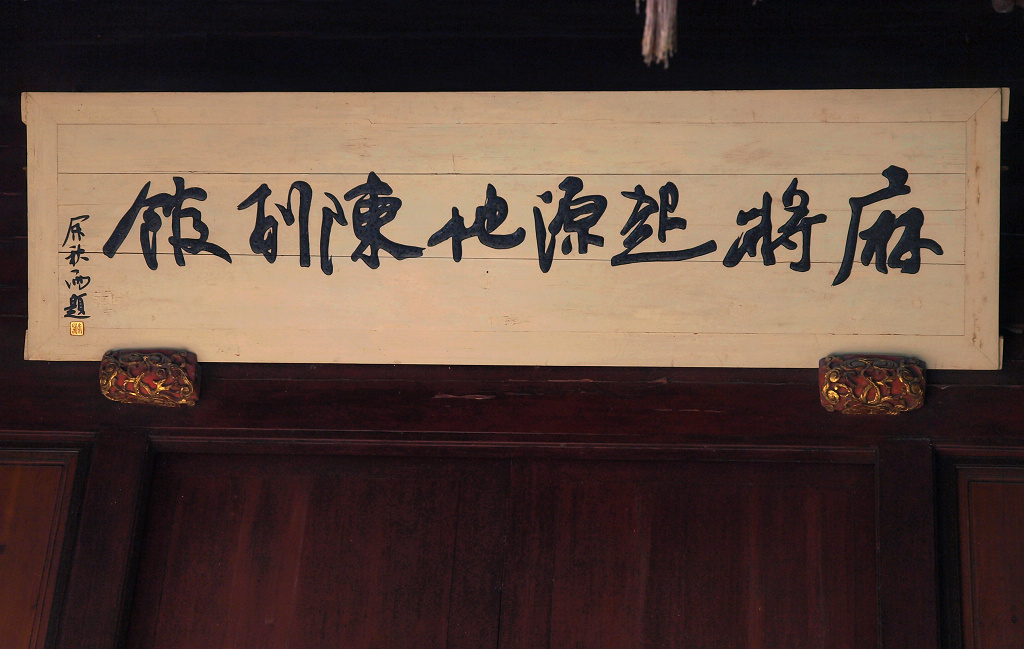 麻將起源地陳列館
余秋雨題